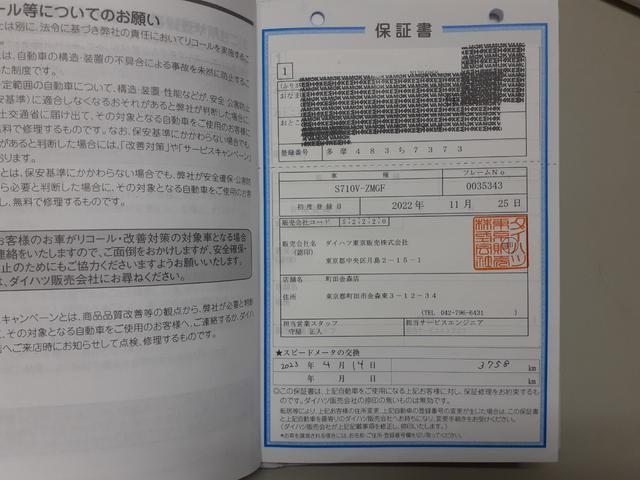 ル等についてのお願い
とは別に、法令に基づき弊社の責任においてリコールを実施する
は、自動車の構造・装置の不具合による事故を未然に防止するこ
た制度です。
定範囲の自動車について、構造・装置・性能などが、安全・公害防止
安基準)に適合しなくなるおそれがあると弊社が判断した場合に
土交通省に届け出て、その対象となる自動車をご使用のお客様に
無料で修理するものです。なお、保安基準にかかわらない場合でも
があると判断した場合には、「改善対策」や「サービスキャンペーン」
おります。
とは、保安基準にかかわらない場合でも、弊社が安全確保・
ら必要と判断した場合に、その対象となる自動車をご使用のお客
し、無料で修理するものです。
お客様のお車がリコール・改善対策の対象車となる場合
連絡をいたしますので、ご面倒をおかけしますが、安全確保・
止のためにもご協力くださいますようお願いいたします。
は、ダイハツ販売会社にお尋ねください。
キャンペーンとは、商品品質改善等の観点から、弊社が必要と判断
に、その対象となる自動車をご使用のお客様へ、ご連絡するか、ダイハ
へご来店時にお知らせして点検、修理するものです。
保証書
1
(ふりが
おなま
おところ
登録番号 多摩 483ち7373
車種 フレームNo
S710V-ZMGF 0035343
初度登録日 2022年 11月 25日
販売会社コード 52220
販売会社名 ダイハツ東京販売株式会社
(認印)
東京都中央区月島2-15-1
店舗名 町田金森店
住所 東京都町田市金森東3-12-34
(TEL 042-796-6431 )
担当営業スタッフ 担当サービスエンジニア
守屋 正人
★スピードメータの交換
2023年 4月 14日 3758 km
年 月 日 km
◎この保証書は、上記自動車をご使用になる上記お客様に対し、保証修理をお約束するも
のです。ダイハツ販売会社の捺印の無いものは無効です。
転居等により、上記お客様の住所変更、上記自動車の登録番号の変更が生じた場合は、この保証書
と上記自動車を最寄りのダイハツ販売会社へお持ちになり、変更手続きをお受けください。
(ダイハツ販売会社が上記記載事項を修正し、捺印いたします。)
*お車を譲渡される場合には、お名前・ご住所・登録番号欄を切り取ってください。